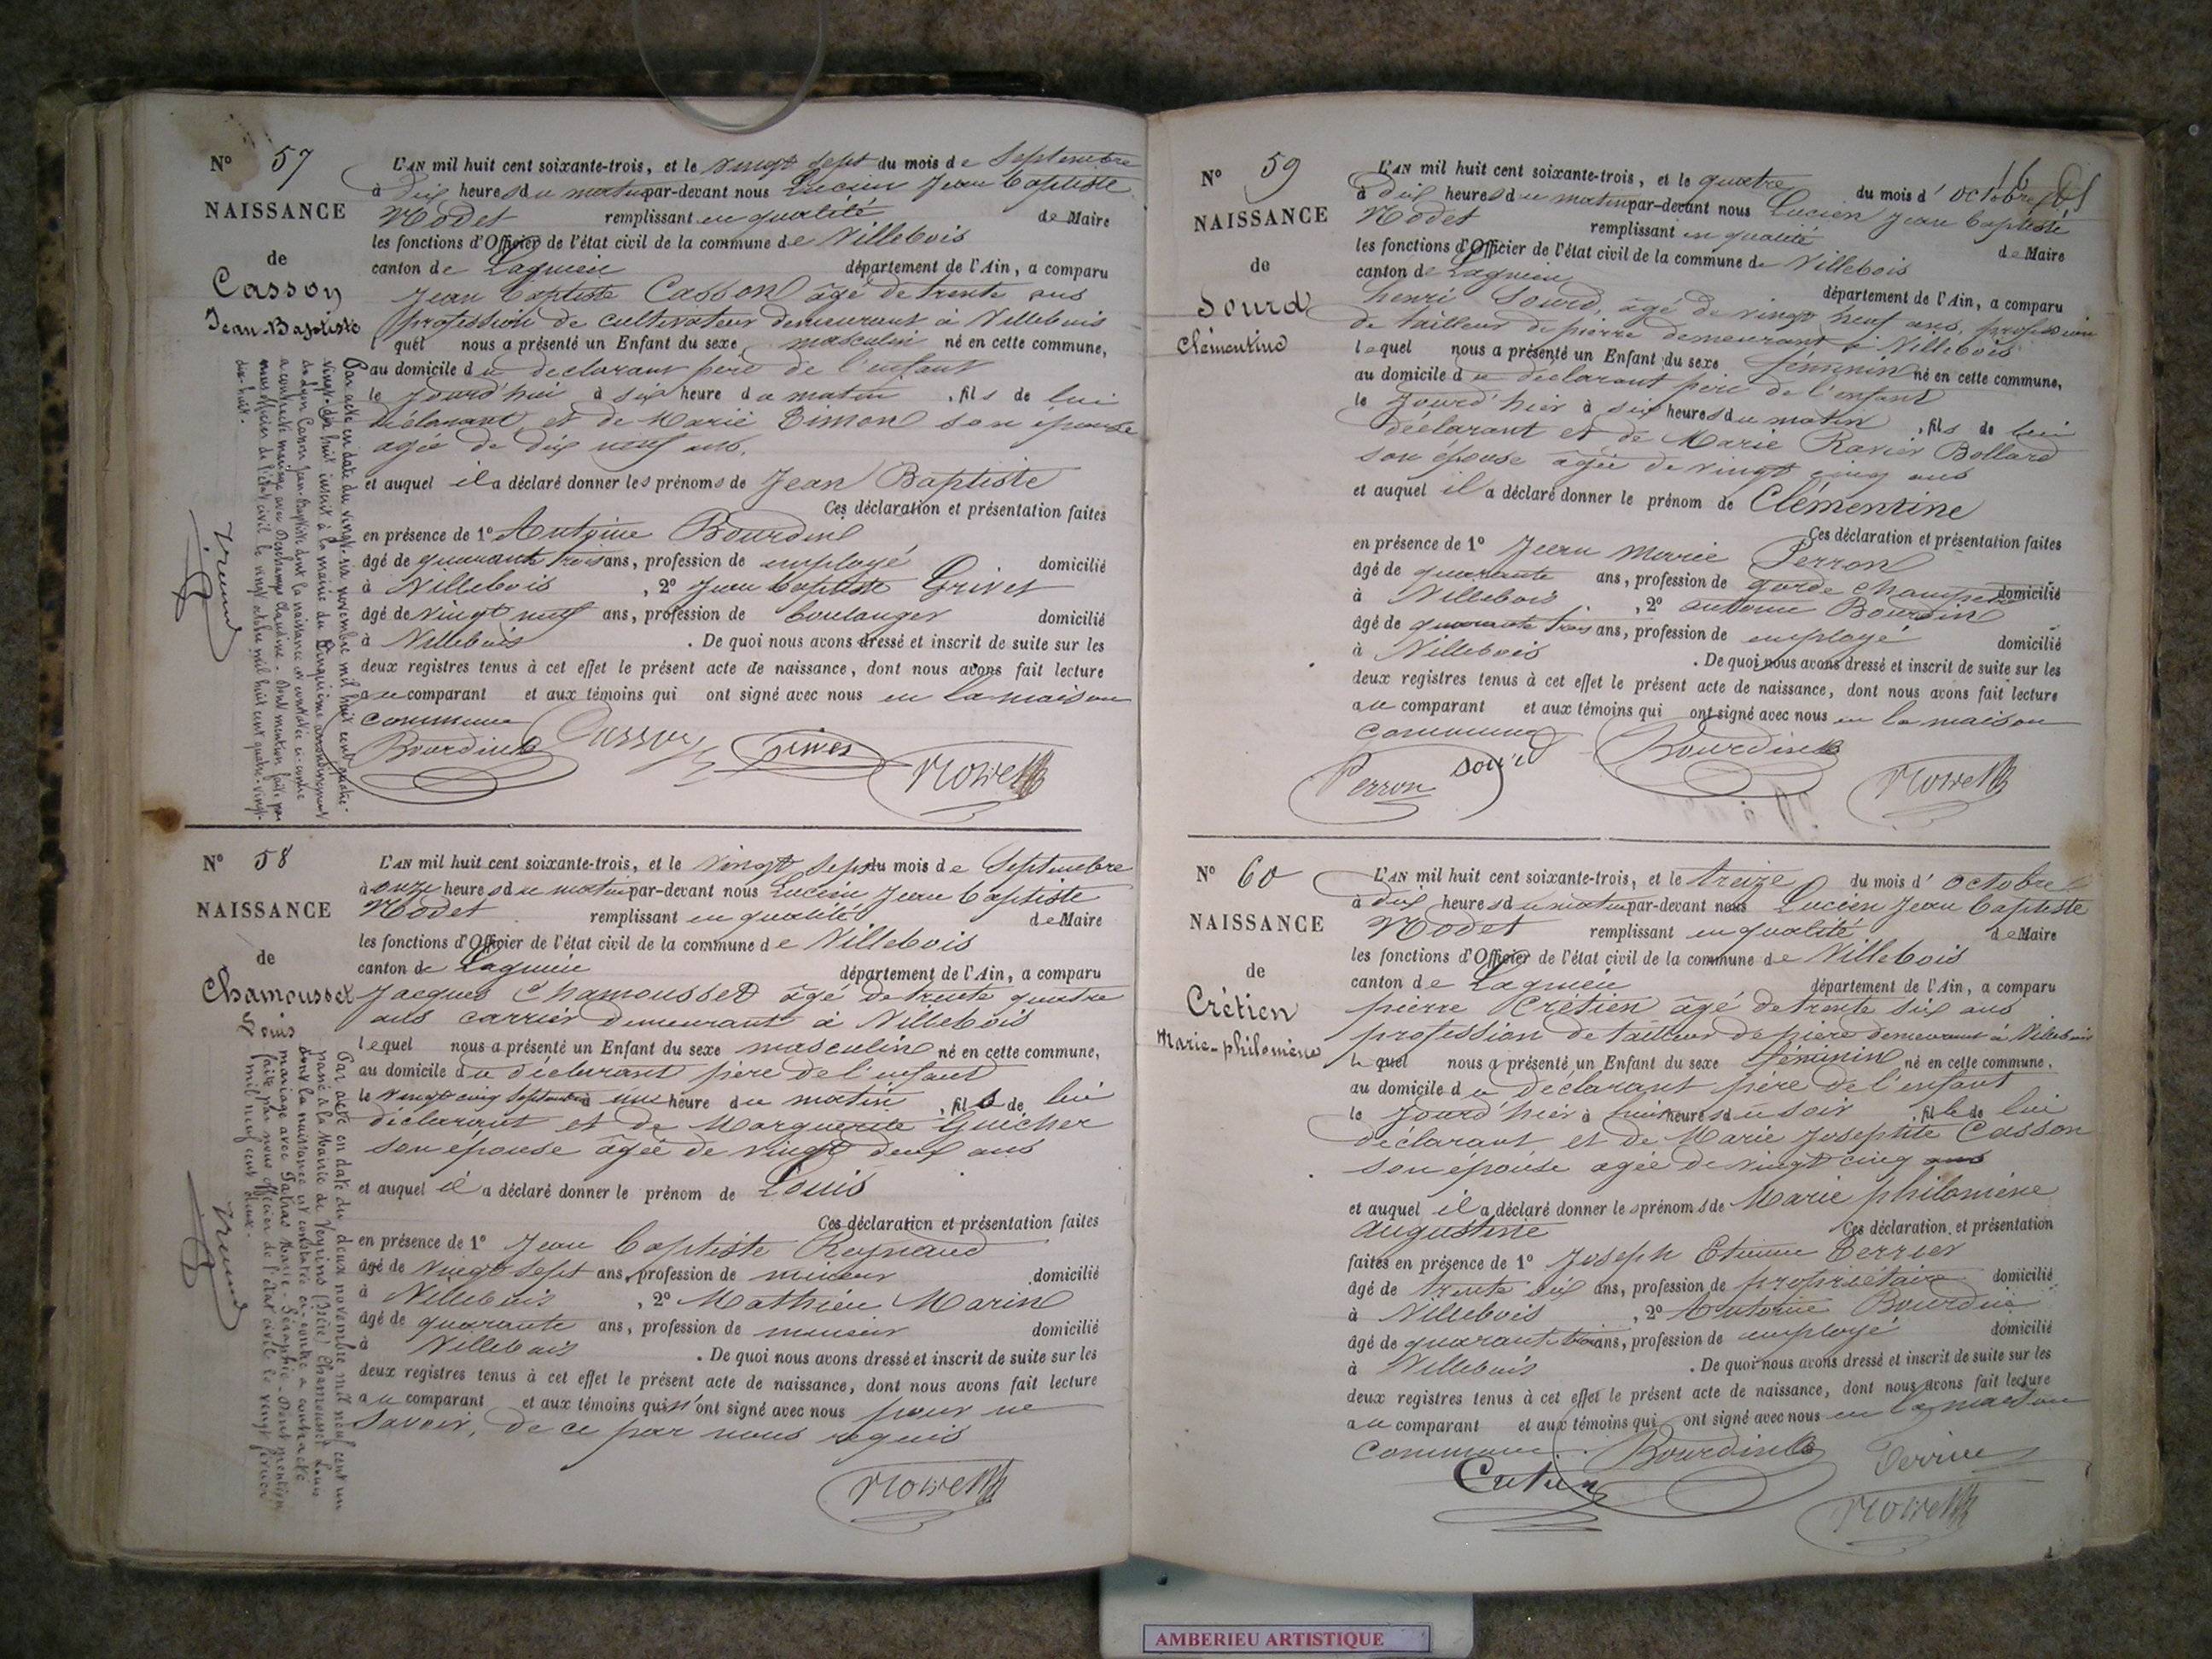 N° 57
NAISSANCE
de
Casson
Jean-Baptiste
L'AN mil huit cent soixante-trois, et le vingt sept du mois de Septembre
à dix heures du matin par-devant nous Lucien Jean Baptiste
Rodet remplissant en qualité de Maire
les fonctions d'Officier de l'état civil de la commune de Villebois
canton de Lagnieu département de l'Ain, a comparu
Jean Baptiste Casson âgé de trente ans
profession de cultivateur demeurant à Villebois
lequel nous a présenté un Enfant du sexe masculin né en cette commune,
au domicile du déclarant père de l'enfant
le jourd'hui à six heure du matin, fils de lui
déclarant et de Marie Simon son épouse
agée de dix neuf ans.
et auquel il a déclaré donner les prénoms de Jean Baptiste
Ces déclaration et présentation faites
en présence de 1° Antoine Bourdin
âgé de quarante trois ans, profession de employé domicilié
à Villebois, 2° Jean Baptiste Grivet
âgé de vingt neuf ans, profession de boulanger domicilié
à Villebois. De quoi nous avons dressé et inscrit de suite sur les
deux registres tenus à cet effet le présent acte de naissance, dont nous avons fait lecture
au comparant et aux témoins qui ont signé avec nous en la maison
commune
Bourdin Casson Grivet
Par acte en date du vingt-six novembre mil huit cent quatre-
vingt-dix huit inscrit à la mairie du cinquième arrondissement
de Lyon Casson Jean-Baptiste dont la naissance est constatée ci-contre
a contracté mariage avec Deschamps Claudine. Dont mention faite par
nous officier de l'état civil le vingt octobre mil huit cent quatre-vingt-
dix-huit.
N° 58
NAISSANCE
de
Chamousset
Louis
L'AN mil huit cent soixante-trois, et le vingt sept du mois de Septembre
à onze heures du matin par-devant nous Lucien Jean Baptiste
Rodet remplissant en qualité de Maire
les fonctions d'Officier de l'état civil de la commune de Villebois
canton de Lagnieu département de l'Ain, a comparu
Jacques Chamousset âgé de trente quatre
ans carrier demeurant à Villebois
lequel nous a présenté un Enfant du sexe masculin né en cette commune,
au domicile du déclarant père de l'enfant
le vingt cinq Septembre à une heure du matin, fils de lui
déclarant et de Marguerite Guicher
son épouse âgée de vingt deux ans
et auquel il a déclaré donner le prénom de Louis
Ces déclaration et présentation faites
en présence de 1° Jean Baptiste Reynaud
âgé de vingt sept ans, profession de mineur domicilié
à Villebois, 2° Mathieu Marin
âgé de quarante ans, profession de domicilié
à Villebois. De quoi nous avons dressé et inscrit de suite sur les
deux registres tenus à cet effet le présent acte de naissance, dont nous avons fait lecture
au comparant et aux témoins qui n'ont signé avec nous pour ne
savoir, de ce par nous requis
Par acte en date du deux novembre mil neuf cent un
passé à la Mairie de Veyrins (Isère) Chamousset Louis
dont la naissance est constatée ci-contre a contracté
mariage avec Marie-Séraphie. Dont mention
faite par nous officier de l'état civil le vingt février
mil neuf cent deux.
16
N° 59
NAISSANCE
de
Sourd
Clémentine
L'AN mil huit cent soixante-trois, et le quatre du mois d'octobre
à dix heures du matin par-devant nous Lucien Jean Baptiste
Rodet remplissant en qualité de Maire
les fonctions d'Officier de l'état civil de la commune de Villebois
canton de Lagnieu département de l'Ain, a comparu
henri Sourd, âgé de vingt neuf ans, profession
de tailleur de pierre demeurant à Villebois
lequel nous a présenté un Enfant du sexe féminin né en cette commune,
au domicile du déclarant père de l'enfant
le jourd'hier à six heures du matin, fils de lui
déclarant et de Marie Ravier Bollard
son épouse âgée de vingt cinq ans
et auquel il a déclaré donner le prénom de Clémentine
Ces déclaration et présentation faites
en présence de 1° Jean Marie Perron
âgé de quarante ans, profession de garde champêtre domicilié
à Villebois, 2° antoine Bourdin
âgé de quarante trois ans, profession de employé domicilié
à Villebois. De quoi nous avons dressé et inscrit de suite sur les
deux registres tenus à cet effet le présent acte de naissance, dont nous avons fait lecture
au comparant et aux témoins qui ont signé avec nous en la maison
commune
Perron Sourd Bourdin
N° 60
NAISSANCE
de
Crétien
Marie-philomène
L'AN mil huit cent soixante-trois, et le treize du mois d'octobre
à dix heures du matin par-devant nous Lucien Jean Baptiste
Rodet remplissant en qualité de Maire
les fonctions d'Officier de l'état civil de la commune de Villebois
canton de Lagnieu département de l'Ain, a comparu
pierre Crétien âgé de trente six ans
profession de tailleur de pierre demeurant à Villebois
lequel nous a présenté un Enfant du sexe féminin né en cette commune.
au domicile du déclarant père de l'enfant
le jourd'hier à huit heures du soir, fille de lui
déclarant et de Marie Josephte Casson
son épouse agée de vingt cinq ans
et auquel il a déclaré donner les prénoms de Marie philomène
augustine Ces déclaration et présentation
faites en présence de 1° Joseph Etienne Perrier
âgé de trente six ans, profession de propriétaire domicilié
à Villebois, 2° Antoine Bourdin
âgé de quarante trois ans, profession de employé domicilié
à Villebois. De quoi nous avons dressé et inscrit de suite sur les
deux registres tenus à cet effet le présent acte de naissance, dont nous avons fait lecture
au comparant et aux témoins qui ont signé avec nous en la maison
commune. Bourdin
AMBERIEU ARTISTIQUE